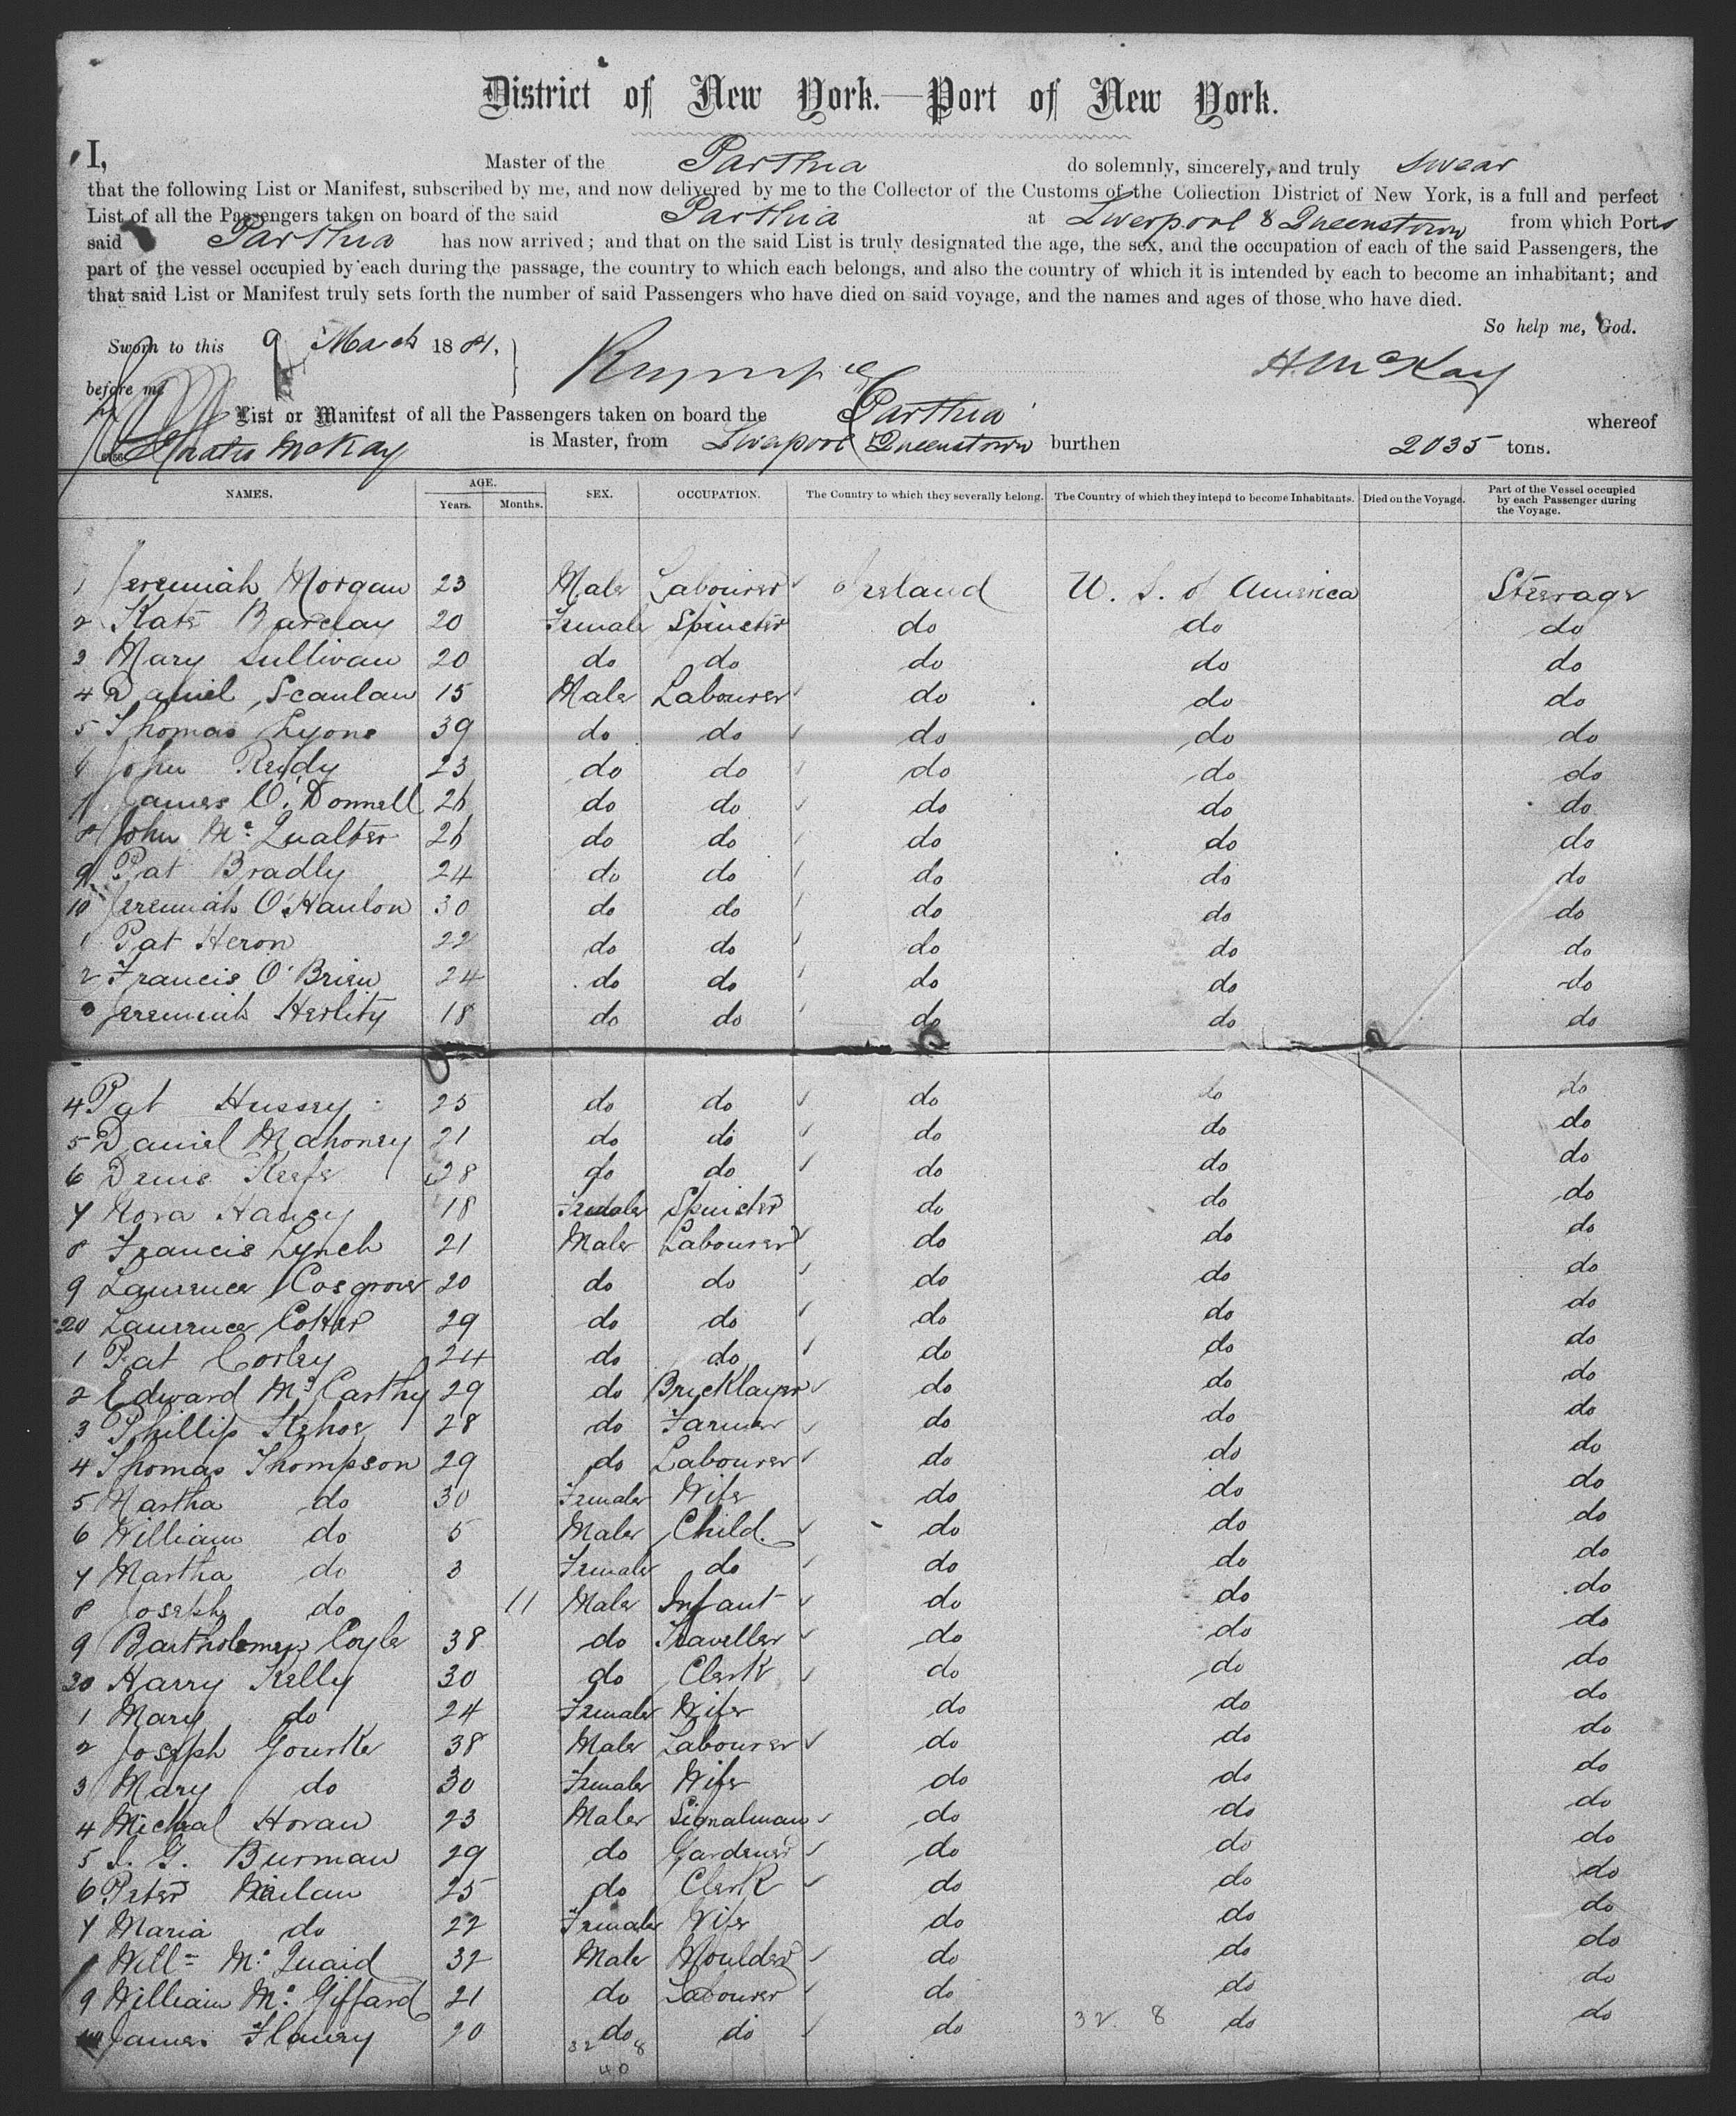 District of New York.—Port of New York.
I, Master of the Parthia do solemnly, sincerely, and truly swear
that the following List or Manifest, subscribed by me, and now delivered by me to the Collector of the Customs of the Collection District of New York, is a full and perfect
List of all the Passengers taken on board of the said Parthia at Liverpool & Queenstown from which Ports
said Parthia has now arrived; and that on the said List is truly designated the age, the sex, and the occupation of each of the said Passengers, the
part of the vessel occupied by each during the passage, the country to which each belongs, and also the country of which it is intended by each to become an inhabitant; and
that said List or Manifest truly sets forth the number of said Passengers who have died on said voyage, and the names and ages of those who have died.
So help me, God.
Sworn to this 9 March 1881,
before me H McKay
List or Manifest of all the Passengers taken on board the Parthia whereof
McKay is Master, from Liverpool & Queenstown burthen 2035 tons.
NAMES. AGE. SEX. OCCUPATION. The Country to which they severally belong. The Country of which they intend to become Inhabitants. Died on the Voyage. Part of the Vessel occupied by each Passenger during the Voyage.
Years. Months.
1 Jeremiah Morgan 23 Male Labourer Ireland U. S. of America Steerage
2 Kate Barclay 20 Female Spinster do do do
3 Mary Sullivan 20 do do do do do
4 Daniel Scanlan 15 Male Labourer do do do
5 Thomas Lyons 39 do do do do do
6 John Reidy 23 do do do do do
7 James O'Donnell 26 do do do do do
8 John Mc Qualter 26 do do do do do
9 Pat Bradly 24 do do do do do
10 Jeremiah O'Hanlon 30 do do do do do
1 Pat Heron 22 do do do do do
2 Francis O'Brien 24 do do do do do
3 Jeremiah Herlity 18 do do do do do
4 Pat Hussey 25 do do do do do
5 Daniel Mahoney 21 do do do do do
6 Denis Keefe 28 do do do do do
7 Nora Haney 18 Female Spinster do do do
8 Francis Lynch 21 Male Labourer do do do
9 Laurence Cosgrove 20 do do do do do
20 Laurence Cotter 29 do do do do do
1 Pat Corley 24 do do do do do
2 Edward Mc Carthy 29 do Bricklayer do do do
3 Phillip Kehoe 28 do Farmer do do do
4 Thomas Thompson 29 do Labourer do do do
5 Martha do 30 Female Wife do do do
6 William do 5 Male Child do do do
7 Martha do 3 Female do do do do
8 Joseph do 11 Male Infant do do do
9 Bartholemew Coyle 38 do Traveller do do do
30 Harry Kelly 30 do Clerk do do do
1 Mary do 24 Female Wife do do do
2 Joseph Gourke 38 Male Labourer do do do
3 Mary do 30 Female Wife do do do
4 Micheal Horan 23 Male Signalman do do do
5 J. G. Burman 29 do Gardener do do do
6 Peter 25 do Clerk do do do
7 Maria do 22 Female Wife do do do
8 Willm Mc Quaid 32 Male Moulder do do do
9 William Mc Giffard 21 do Labourer do do do
40 James Flanery 20 do do do 32 8 do do
32 8
40